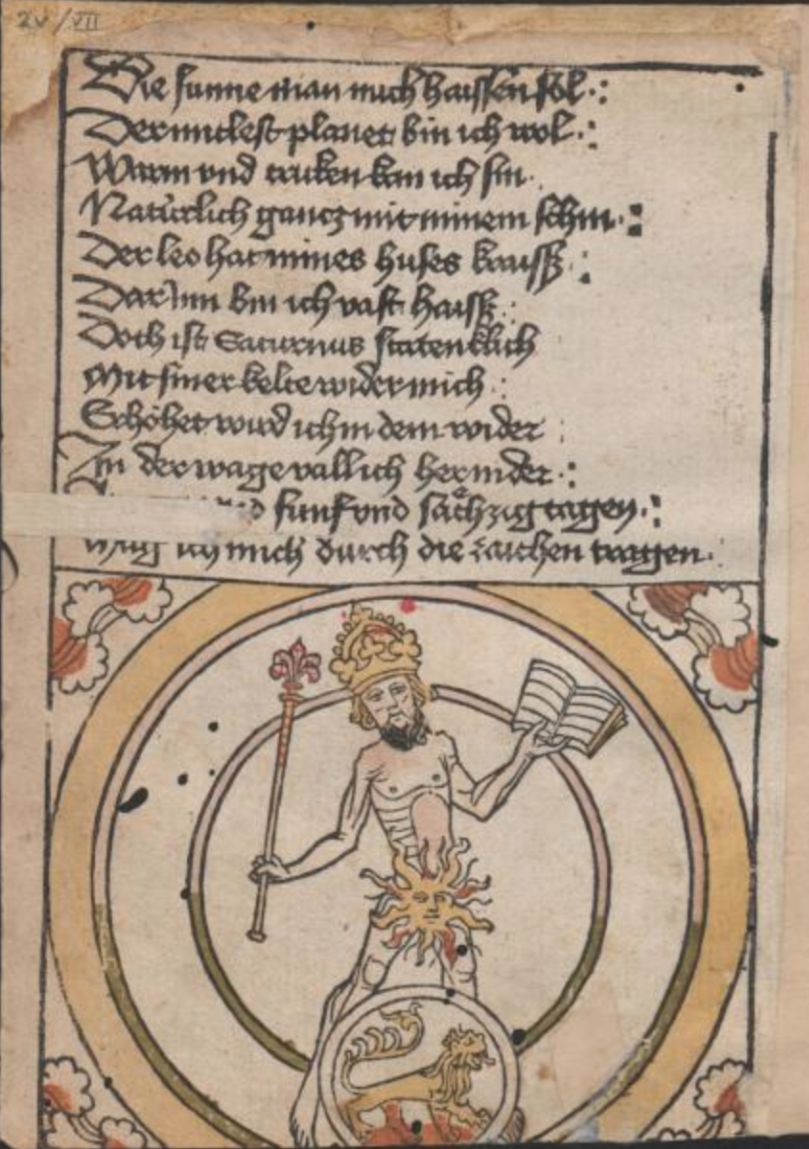 2v/VII
Die sunne man mich haissen sol
Der mitlest planet bin ich wol
Warm vnd trucken kan ich sin
Natürlich gantz mit minem schin
Der leo hat mines huses kraiss
Dar Inn bin ich vast haiss
Doch ist Saturnus statenklich
Mit siner kelte wider mich
Erhöhet wird ich in dem wider
In der wage vall ich hernider
vnd funf vnd sächzig tagen
Mag ich mich durch die zaichen tragen